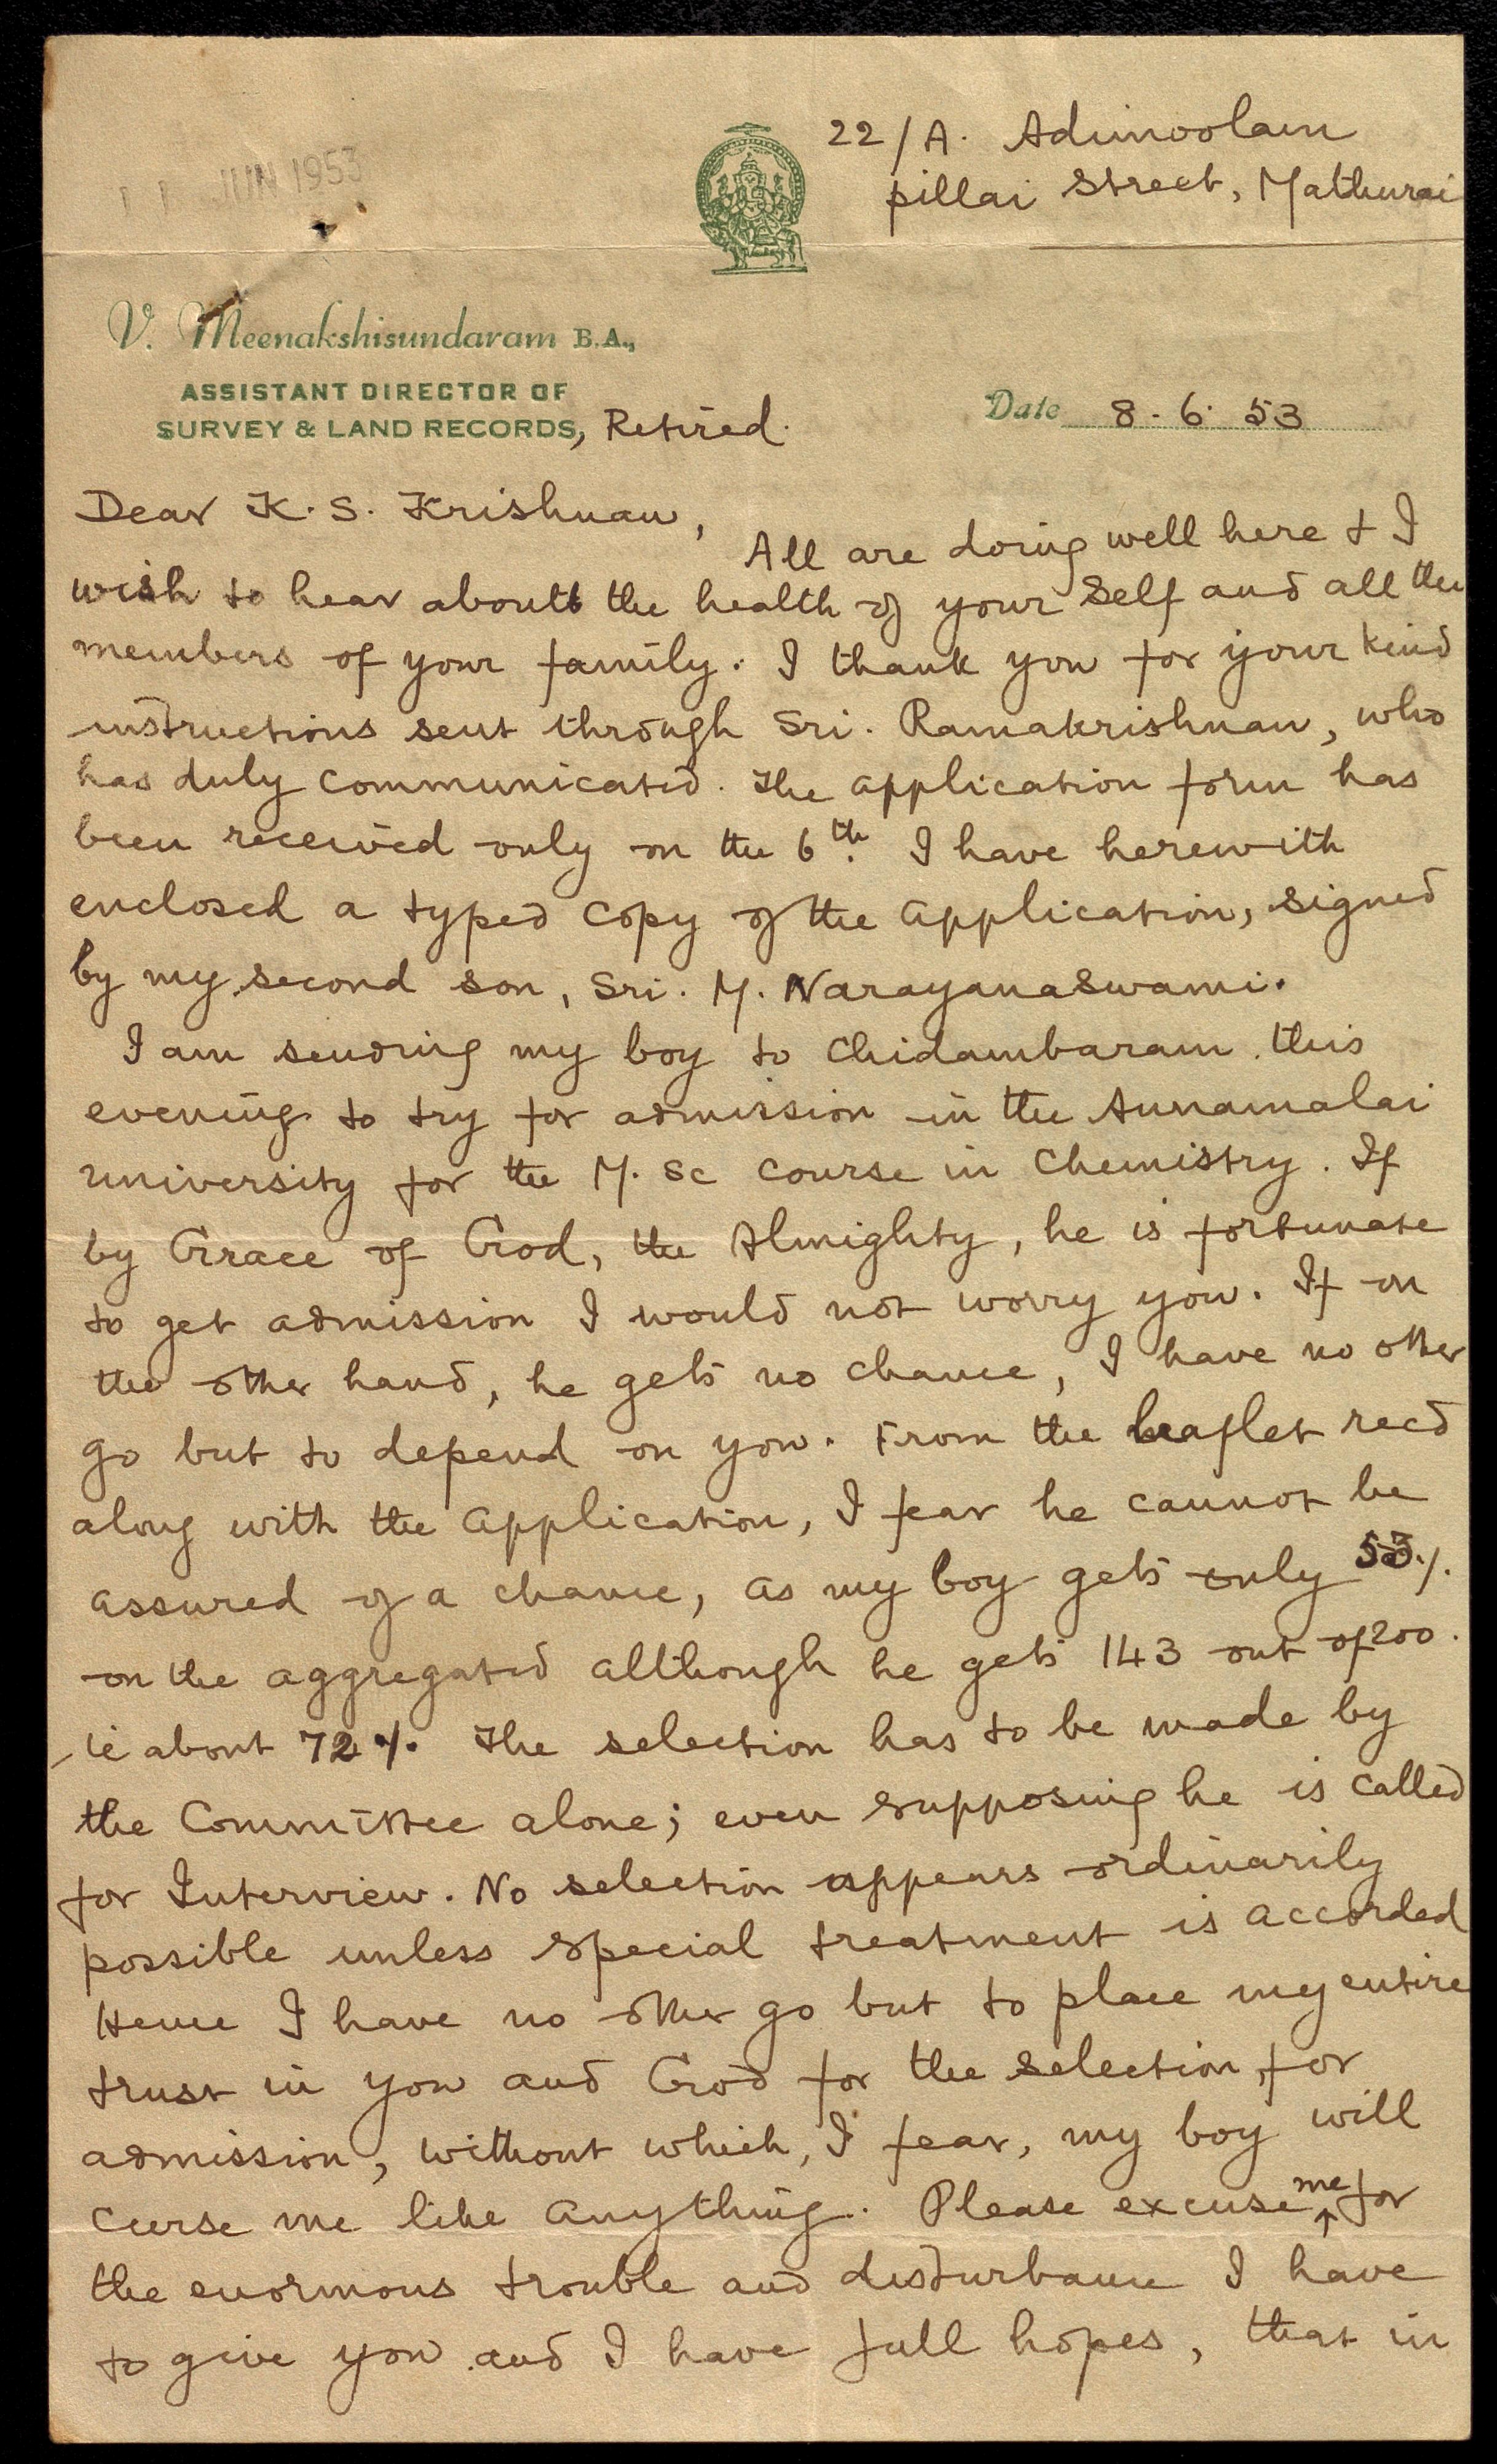 22/A. Adimoolam
pillai Street, Mathurai
11 JUN 1953
V. Meenakshisundaram B.A.,
ASSISTANT DIRECTOR OF
SURVEY & LAND RECORDS, Retired.
Date 8. 6. 53
Dear K. S. Krishnan,
All are doing well here & I
wish to hear about the health of your self and all the
members of your family. I thank you for your kind
instructions sent through Sri. Ramakrishnan, who
has duly communicated. The application form has
been received only on the 6th. I have herewith
enclosed a typed copy of the application, signed
by my second son, Sri. M. Narayanaswami.
I am sending my boy to Chidambaram this
evening to try for admission in the Annamalai
University for the M. Sc course in Chemistry. If
by Grace of God, the Almighty, he is fortunate
to get admission I would not worry you. If on
the other hand, he gets no chance, I have no other
go but to depend on you. From the leaflet recd
along with the application, I fear he cannot be
assured of a chance, as my boy gets only 53%
on the aggregated although he gets 143 out of 200.
ie about 72%. The selection has to be made by
the Committee alone; even supposing he is called
for Interview. No selection appears ordinarily
possible unless special treatment is accorded
Hence I have no other go but to place my entire
trust in you and God for the selection, for
admission, without which, I fear, my boy will
curse me like anything. Please excuse me for
the enormous trouble and disturbance I have
to give you and I have full hopes, that in